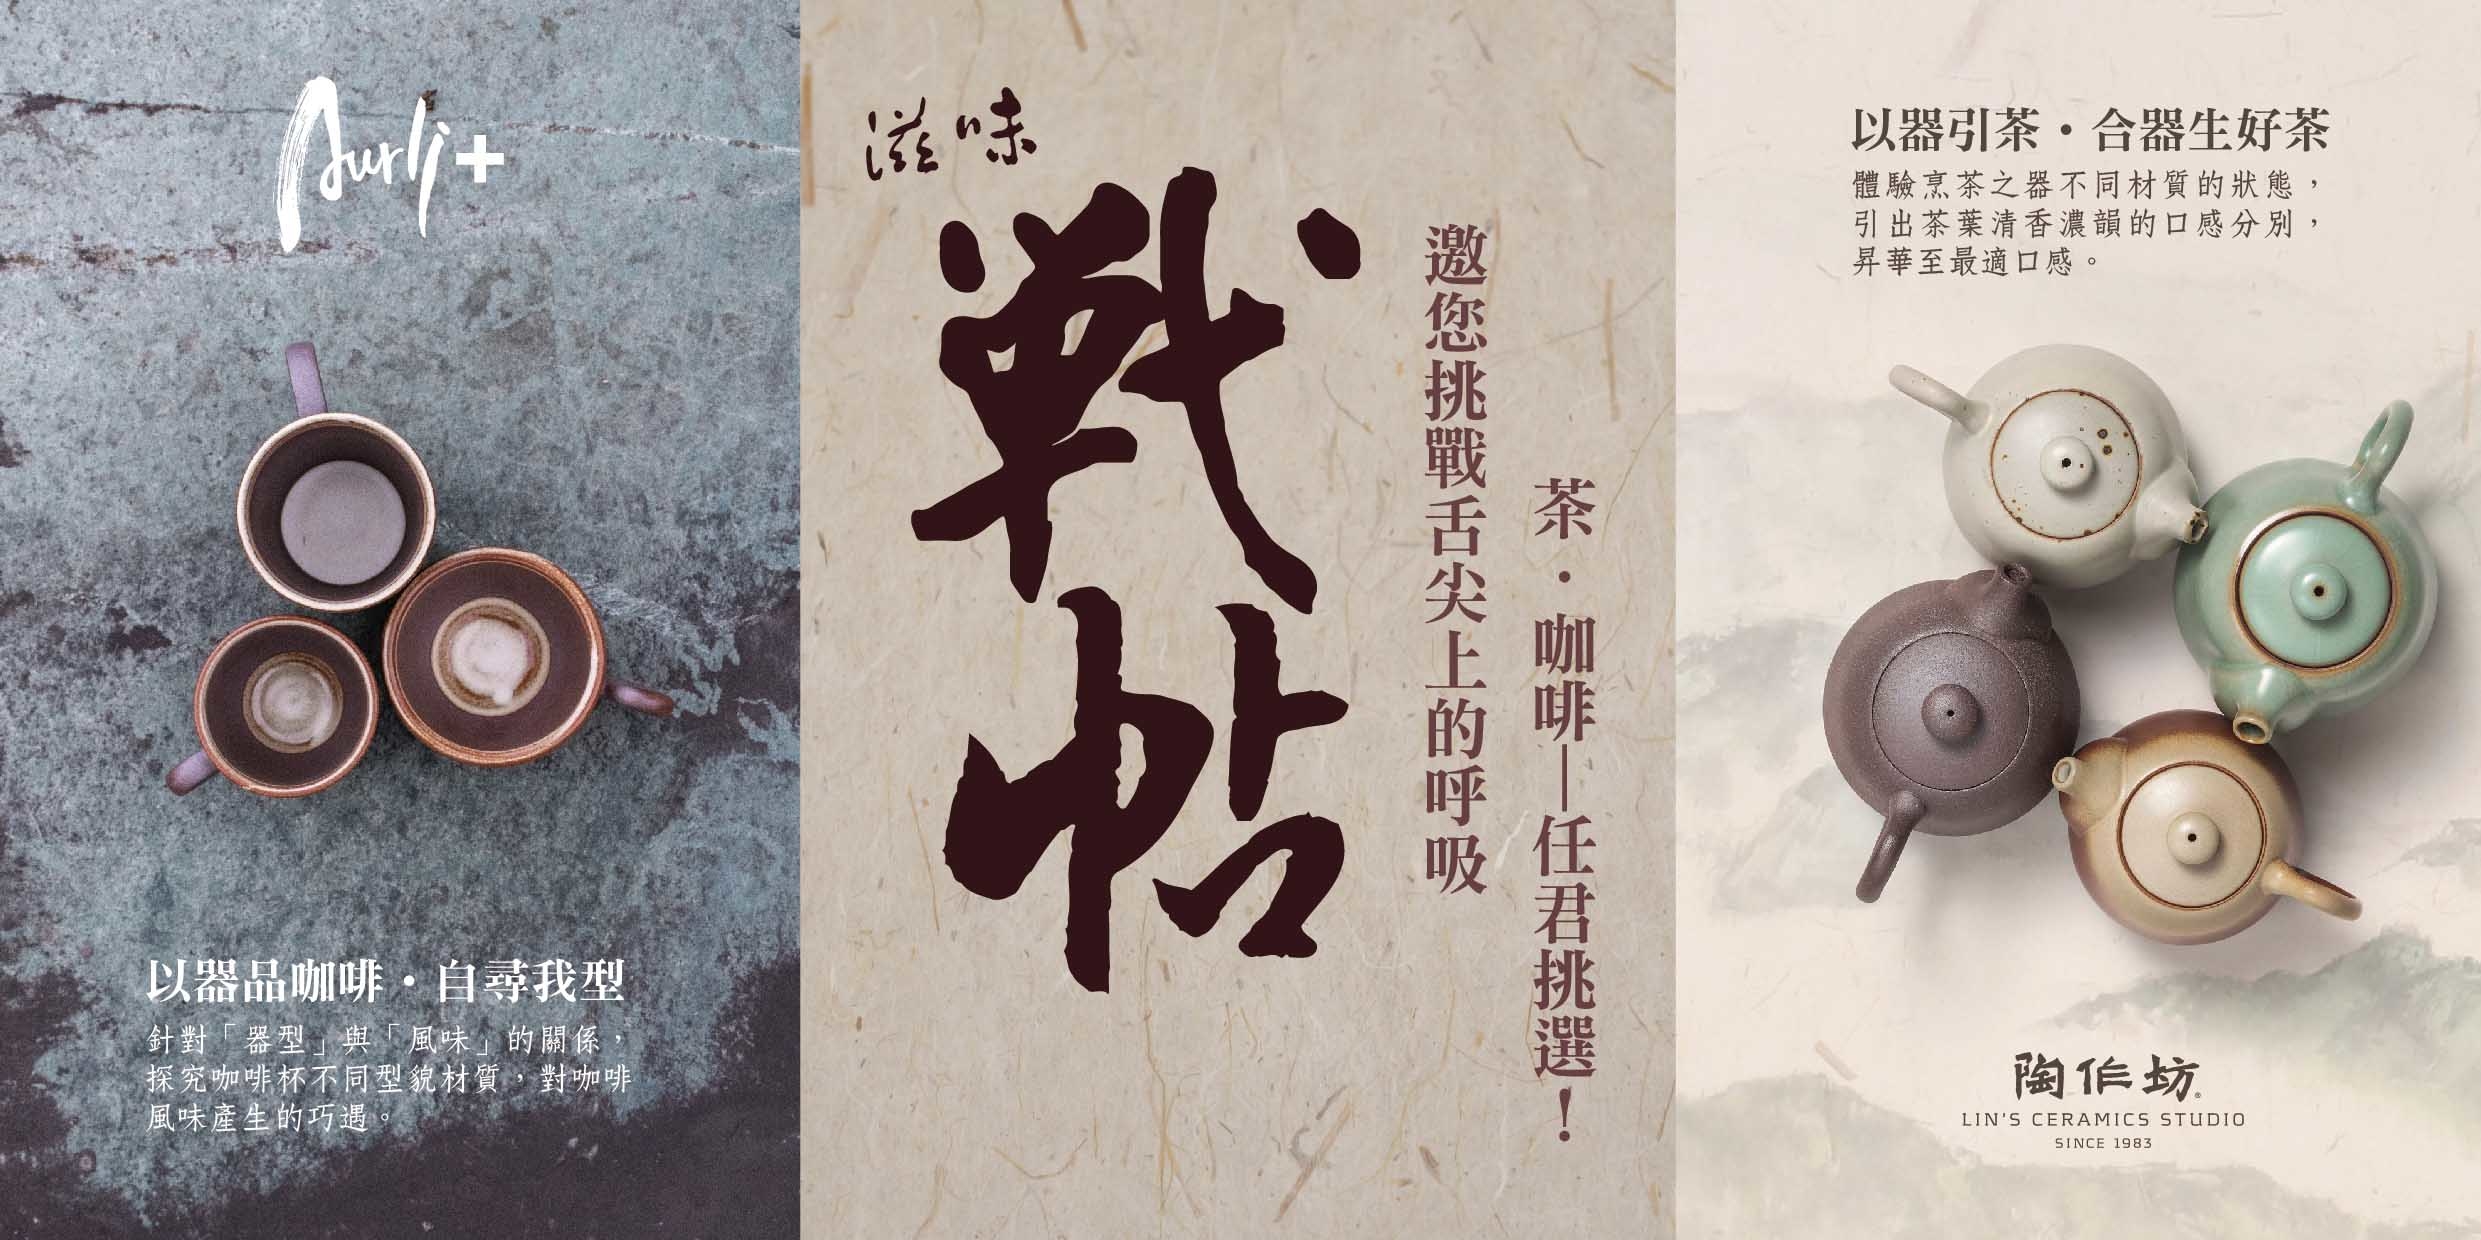 Aurli+
以器品咖啡·自尋我型
針對「器型」與「風味」的關係，
探究咖啡杯不同型貌材質，對咖啡
風味產生的巧遇。
滋味
戰帖
邀您挑戰舌尖上的呼吸
茶·咖啡—任君挑選！
以器引茶·合器生好茶
體驗烹茶之器不同材質的狀態，
引出茶葉清香濃韻的口感分別，
昇華至最適口感。
陶作坊®
LIN'S CERAMICS STUDIO
SINCE 1983